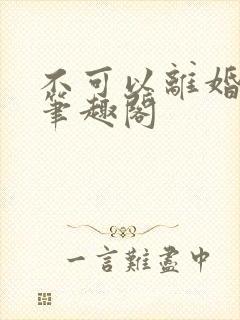 不可以離婚
筆趣閣
一言難盡中